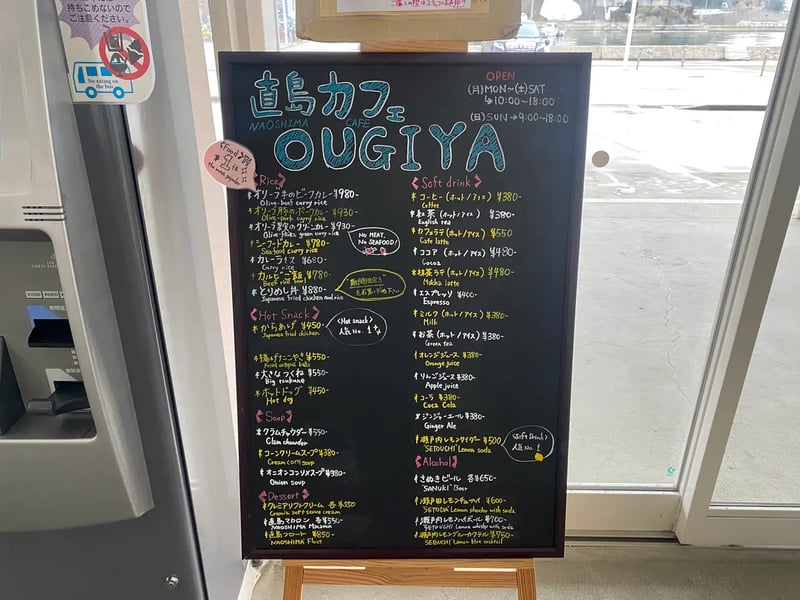 持ちこめないので
ご注意ください。
No eating on
the bus
直島カフェ
NAOSHIMA CAFE
OUGIYA
OPEN
(月)MON~(土)SAT
↳10:00~18:00
(日)SUN→9:00~18:00
<Food>
the most popular
《Rice》
*オリーブ牛のビーフカレー ¥980-
Olive-beef curry rice
*オリーブ豚のポークカレー ¥930-
Olive-pork curry rice
*オリーブ果実のグリーンカレー ¥930-
green curry rice
NO MEAT,
NO SEAFOOD!
*シーフードカレー ¥780-
Seafood curry rice
*カレーライス ¥680-
Curry rice
*カルビご飯 ¥780-
Beef rice bowl
*とりめし丼 ¥880-
Japanese fried chicken and rice
《Hot Snack》
*からあげ ¥450-
Japanese fried chicken
<Hot snack>
人気No.1
*揚げたこやき ¥550-
Fried octopus ball
*大きなつくね ¥550-
Big tsukune
*ホットドッグ ¥450-
Hot dog
《Soup》
*クラムチャウダー ¥550-
Clam chowder
*コーンクリームスープ ¥380-
Cream corn soup
*オニオンコンソメスープ ¥380-
Onion soup
《Dessert》
*クレミアソフトクリーム 各¥550
Cremia soft serve cream
*直島マカロン 各¥550-
NAOSHIMA Macaron
*直島フロート ¥850-
NAOSHIMA Float
《Soft drink》
*コーヒー(ホット/アイス) ¥380-
Coffee
*紅茶(ホット/アイス) ¥380-
English tea
*カフェラテ(ホット/アイス) ¥550
Cafe latte
*ココア(ホット/アイス) ¥480-
Cocoa
*抹茶ラテ(ホット/アイス) ¥480-
Matcha latte
*エスプレッソ ¥400-
Espresso
*ミルク(ホット/アイス) ¥380-
Milk
*お茶(ホット/アイス) ¥380-
Green tea
*オレンジジュース ¥380-
Orange juice
*りんごジュース ¥380-
Apple juice
*コーラ ¥380-
Coca Cola
*ジンジャーエール ¥380-
Ginger Ale
*瀬戸内レモンサイダー ¥500
"SETOUCHI" Lemon soda
<Soft Drink>
人気No.1
《Alcohol》
*さぬきビール ¥650-
"SANUKI" Beer
*瀬戸田レモンチューハイ ¥600-
"SETODA" Lemon shochu with soda
*瀬戸内レモンハイボール ¥700-
"SETOUCHI" Lemon whisky with soda
*瀬戸内レモンブルーカクテル ¥750-
"SETOUCHI" Lemon blue cocktail